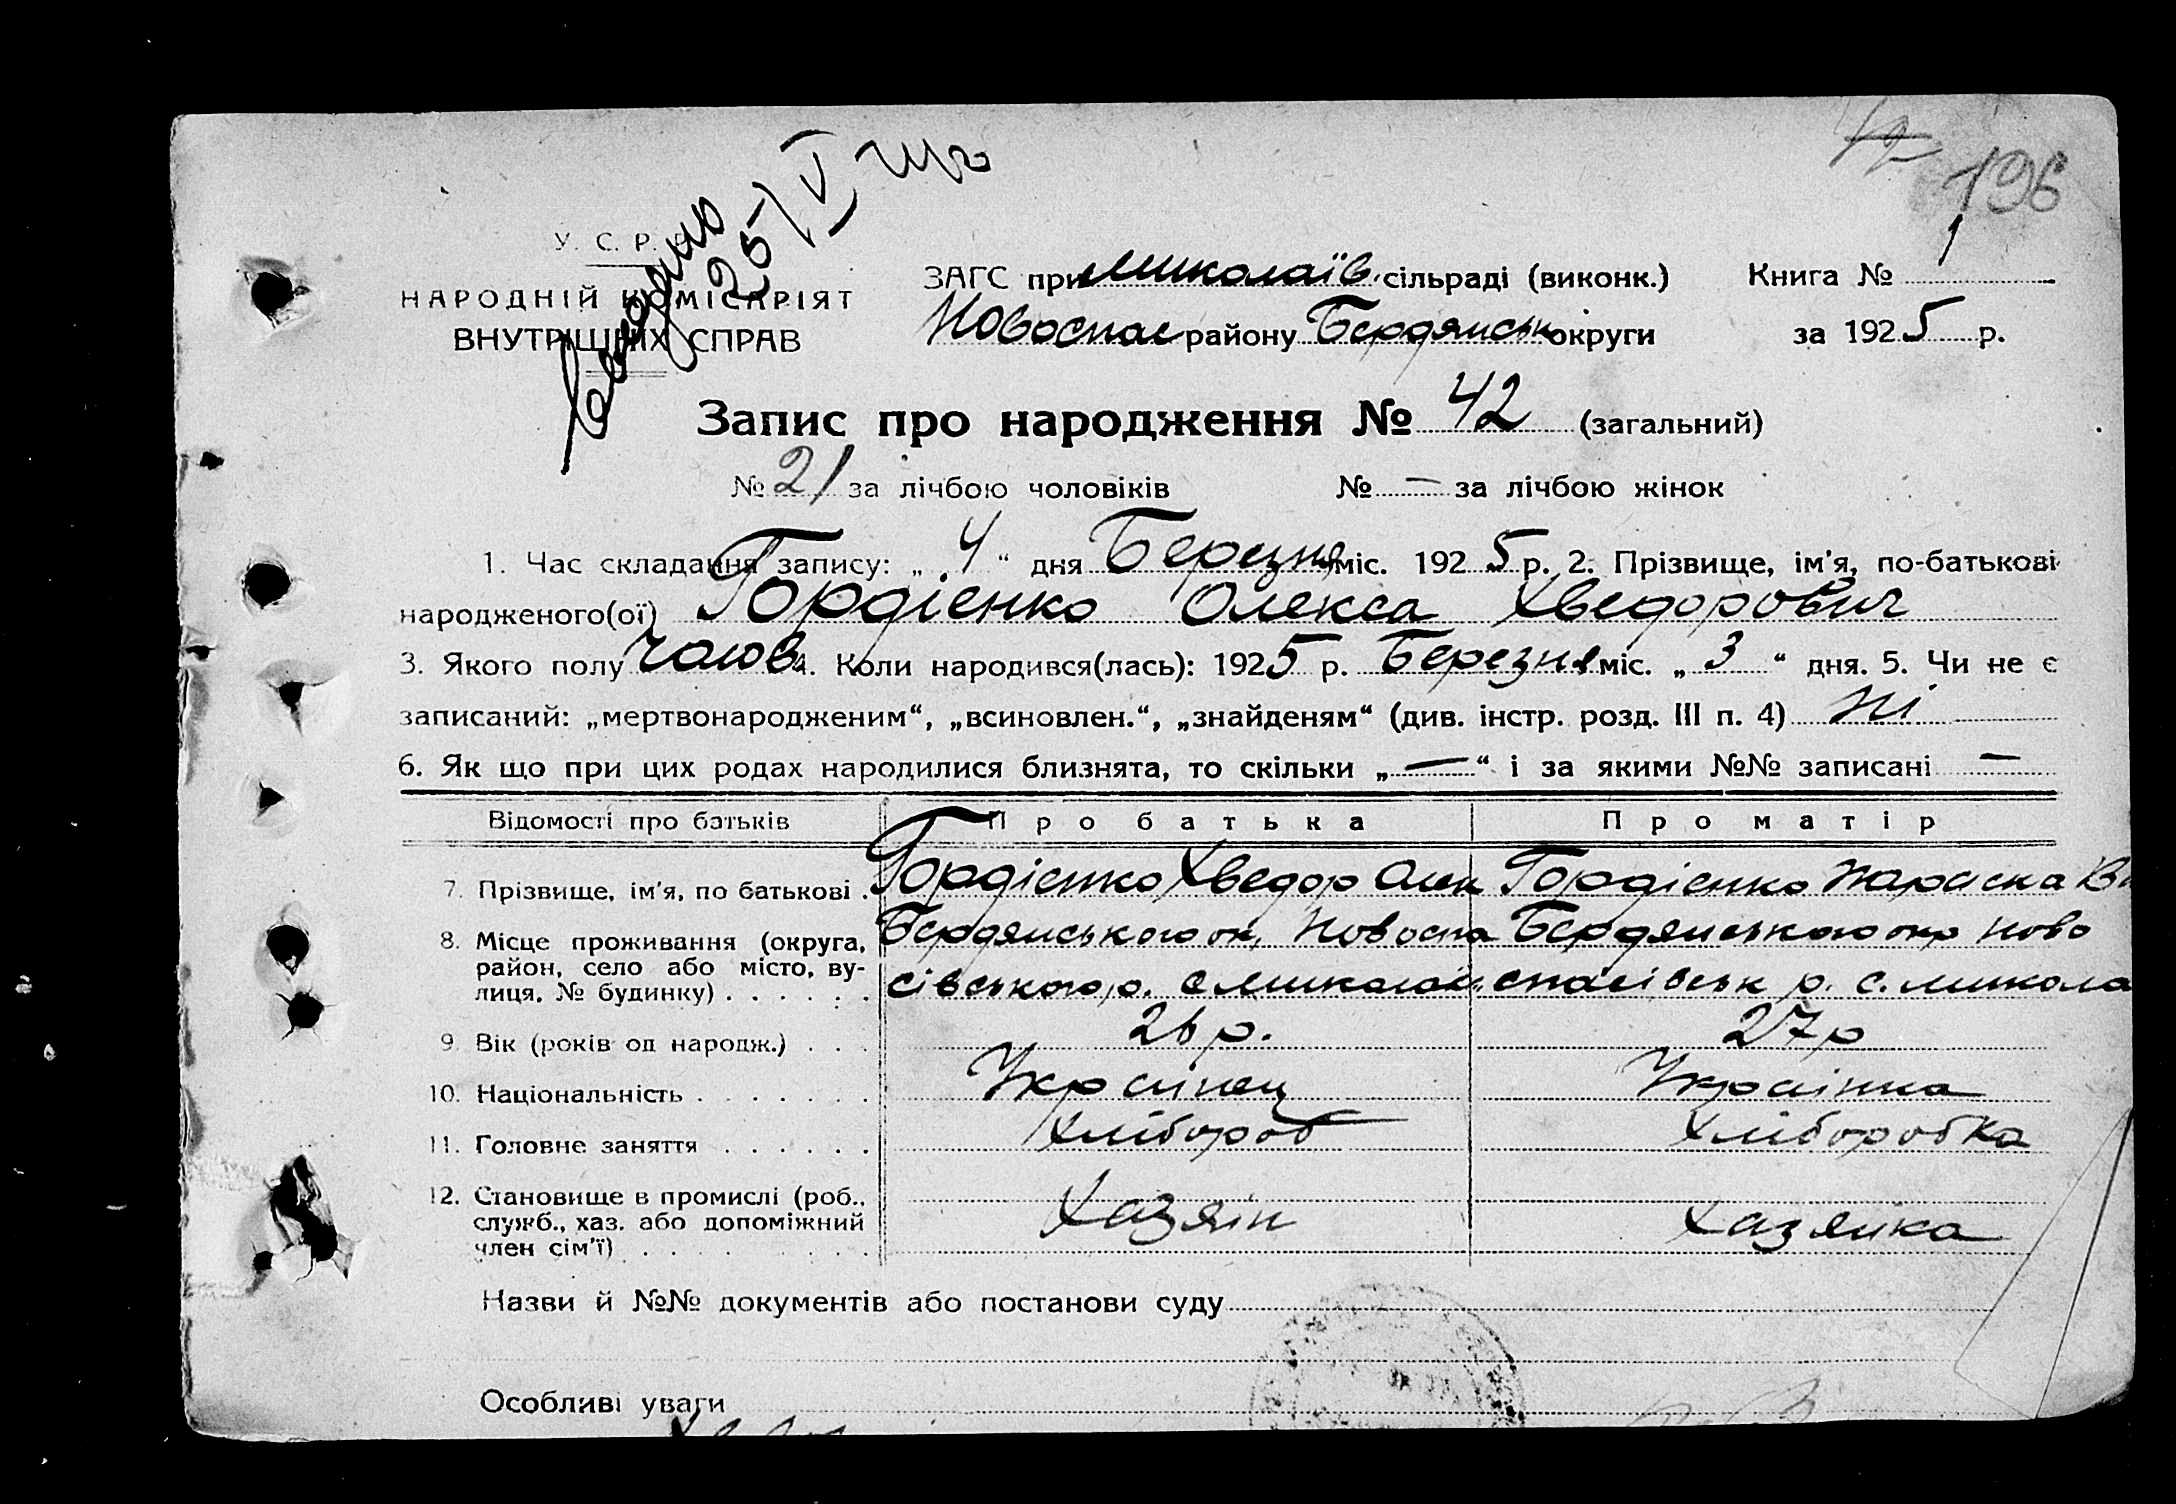 196
У. С. Р. Р.
НАРОДНІЙ КОМІСАРІЯТ
ВНУТРІШНІХ СПРАВ
25/V
ЗАГС при Миколаїв. сільраді (виконк.) Книга № 1
Новоспас району Бердянськ округи за 1925 р.
Запис про народження № 42 (загальний)
№ 21 за лічбою чоловіків № — за лічбою жінок
1. Час складання запису: „ 4 “ дня Березня міс. 1925 р. 2. Прізвище, ім'я, по-батькові
народженого(ої) Гордієнко Олекса Хведорович
3. Якого полу чолов 4. Коли народився(лась): 1925 р. Березня міс. „ 3 “ дня. 5. Чи не є
записаний: „мертвонародженим“, „всиновлен.“, „знайденям“ (див. інстр. розд. III п. 4) Ні
6. Як що при цих родах народилися близнята, то скільки „ — “ і за якими №№ записані —
Відомості про батьків Про батька Про матір
7. Прізвище, ім'я, по батькові . Гордієнко Хведор Олек Гордієнко Параска В
8. Місце проживання (округа, Бердянського ок, Новоспа Бердянського окр Ново
район, село або місто, ву- сівського р. с Миколаїв. спасівськ р. с. Микола
лиця, № будинку) . . . . . .
9. Вік (років од народж.) . . . 26 р. 27 р
10. Національність . . . . . . . Українец Українка
11. Головне заняття . . . . . . Хлібороб Хліборобка
12. Становище в промислі (роб.,
служб., хаз. або допоміжний Хазяін Хазяйка
член сім'ї) . . . . . . . .
Назви й №№ документів або постанови суду
Особливі уваги